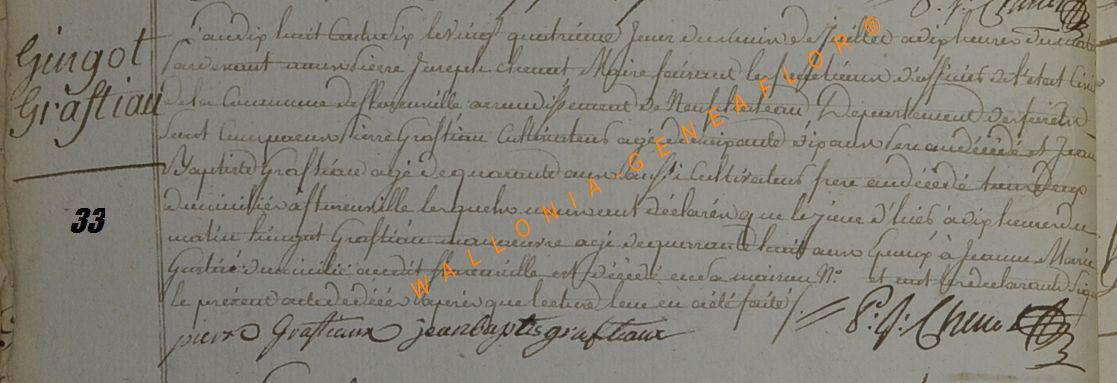 P. J. Chenot
Gingot
Graftiau
33
L'an dix huit cent dix le vingt quatrieme jour du mois de Juillet a dix heures du matin
pardevant nous Pierre Joseph chenot Maire faisant les fonctions d'officier de l'etat Civil
de la Commune de florenville arrondissement de Neufchateau Département des forêts
sont Comparus Pierre Graftiau Cultivateur agé de cinquante six ans et Jean
Baptiste Graftiau agé de quarante ans aussi Cultivateur frere au décédé tous Deux
domiciliés a florenville lesquels nous ont déclaré que le jour d'hier à dix heures du
matin hingot Graftiau manoeuvre agé de quarante huit ans Epoux à Jeanne Marie
domicilié audit florenville est décédé en sa maison N° et ont les declarants signé
le présent acte de décés après que lecture leur en a été faite /.
pierre Graftiaux jean baptis graftiaux P. J. Chenot
WALLONIA-GENEAFLOR®